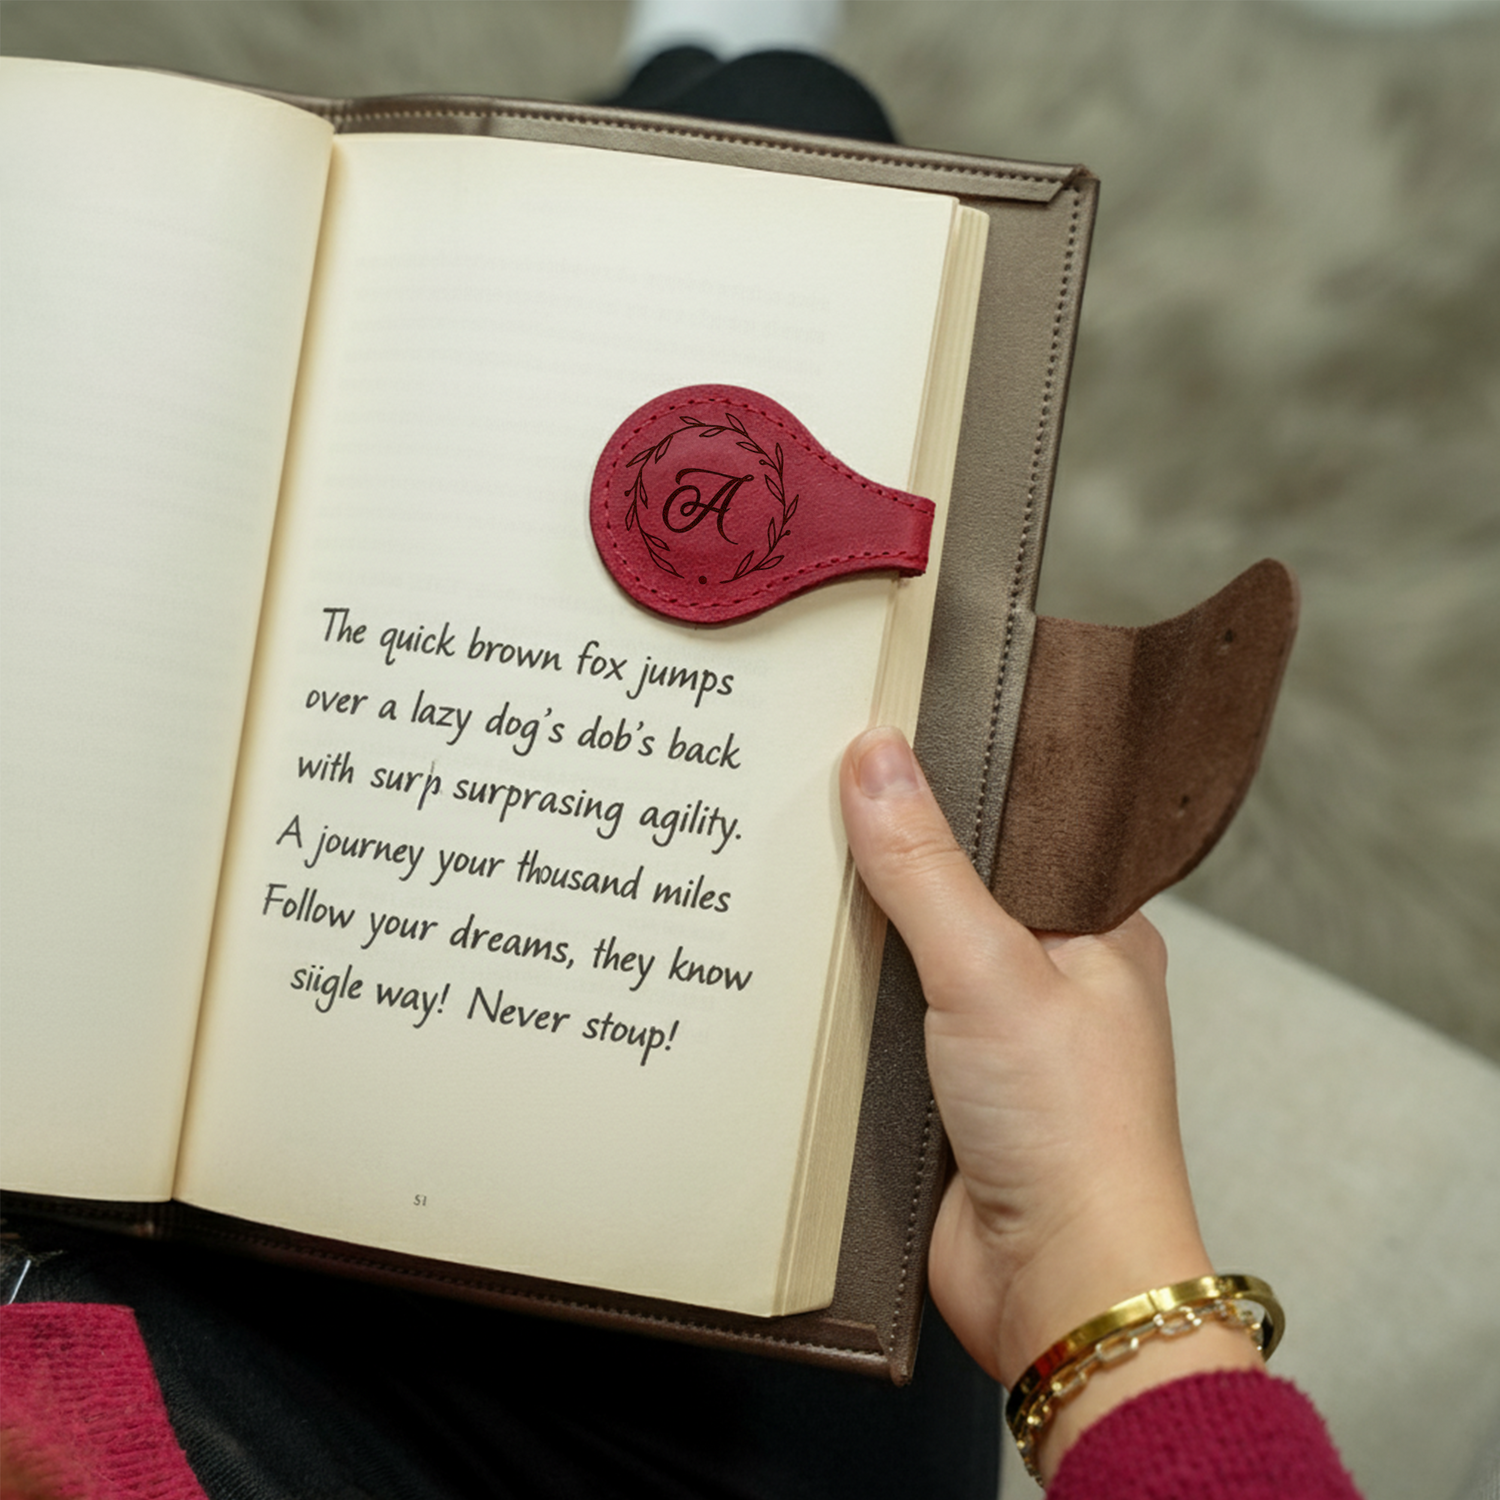 A
The quick brown fox jumps
over a lazy dog's dob's back
with surp surprasing agility.
A journey your thousand miles
Follow your dreams, they know
siigle way! Never stoup!
51